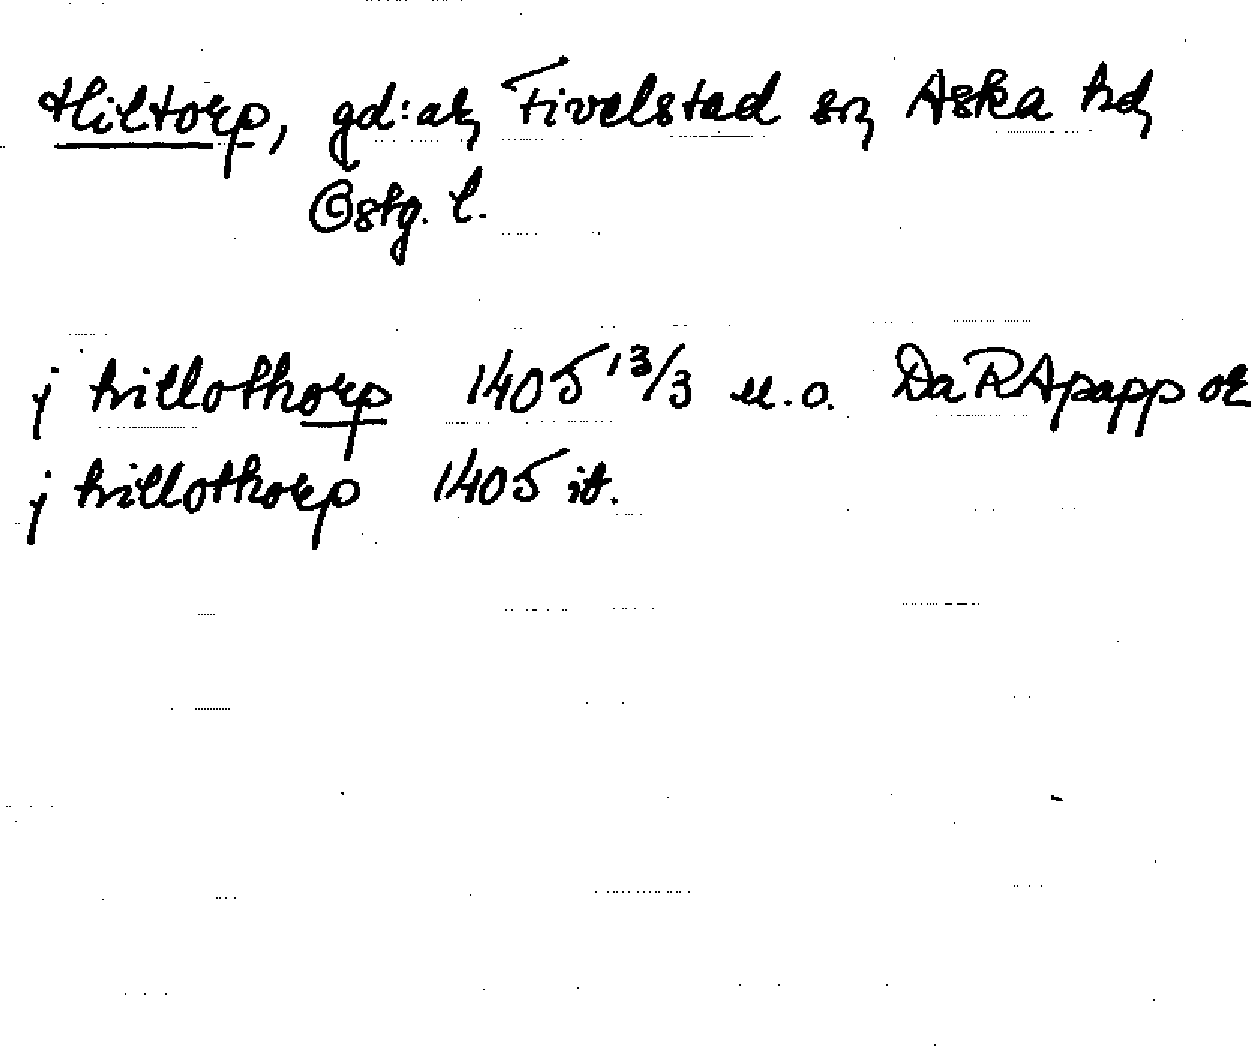 Hiltorp, gd:ar, Fivelstad sn, Aska hd,
Östg. l.
j hillothorp 1405 13/3 u.o. DaRApapp or
j hillothorp 1405 it.